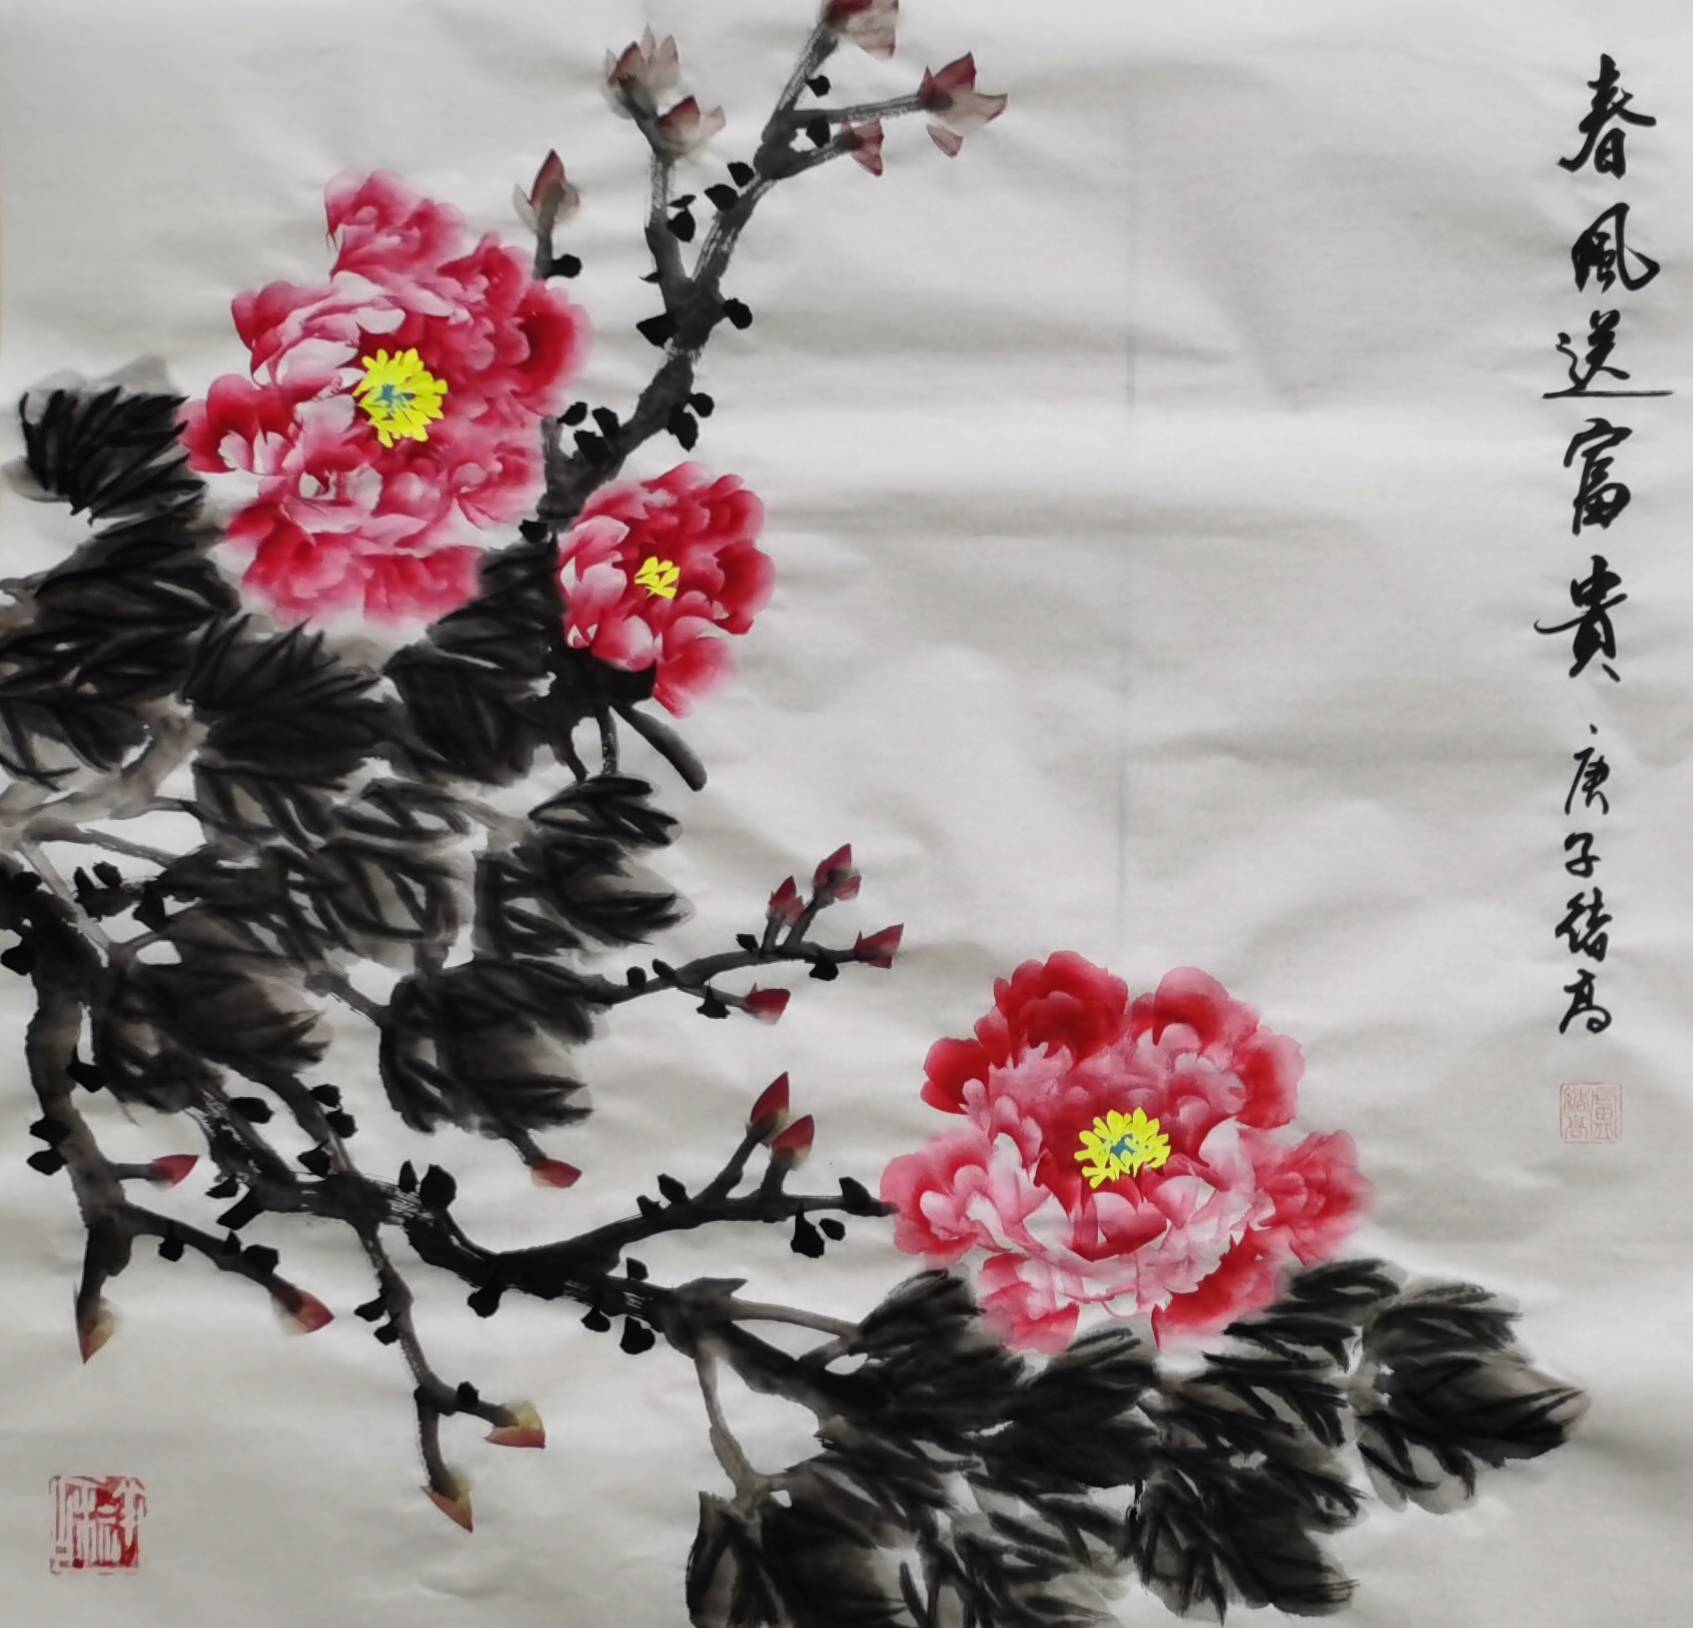 春風送富貴 庚子緒高